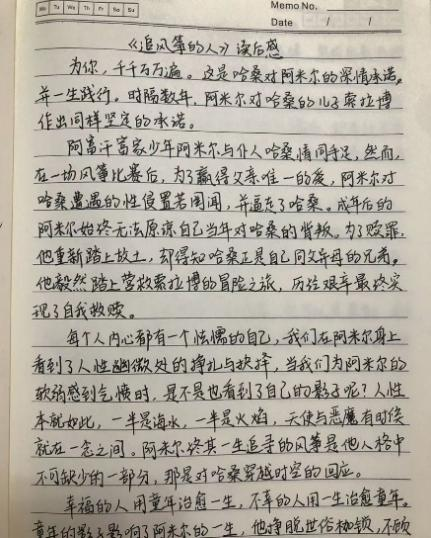 Mo Tu We Th Fr Sa Su
Memo No.
Date / /
《追风筝的人》读后感
为你，千千万万遍。这是哈桑对阿米尔的深情承诺，
并一生践行。时隔数年，阿米尔对哈桑的儿子索拉博
作出同样坚定的承诺。
阿富汗富家少年阿米尔与仆人哈桑情同手足，然而，
在一场风筝比赛后，为了赢得父亲唯一的爱，阿米尔对
哈桑遭遇的性侵置若罔闻，并逼走了哈桑。成年后的
阿米尔始终无法原谅自己当年对哈桑的背叛。为了赎罪，
他重新踏上故土，却得知哈桑正是自己同父异母的兄弟。
他毅然踏上营救索拉博的冒险之旅，历经艰辛最终实
现了自我救赎。
每个人内心都有一个怯懦的自己，我们在阿米尔身上
看到了人性幽微处的挣扎与抉择，当我们为阿米尔的
软弱感到气愤时，是不是也看到了自己的影子呢？人性
本就如此，一半是海水，一半是火焰，天使与恶魔有时候
就在一念之间。阿米尔终其一生追寻的风筝是他人格中
不可缺少的一部分，那是对哈桑穿越时空的回应。
幸福的人用童年治愈一生，不幸的人用一生治愈童年。
童年的影子影响了阿米尔的一生，他挣脱世俗枷锁，不顾